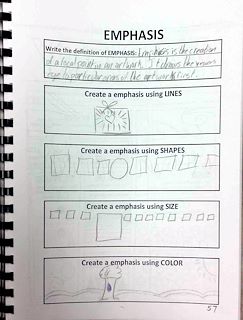 EMPHASIS
Write the definition of EMPHASIS: Emphasis is the creation
of a focal point in an artwork. It draws the viewers
eye to particular areas of the artworks first.
Create a emphasis using LINES
Create a emphasis using SHAPES
Create a emphasis using SIZE
Create a emphasis using COLOR
57